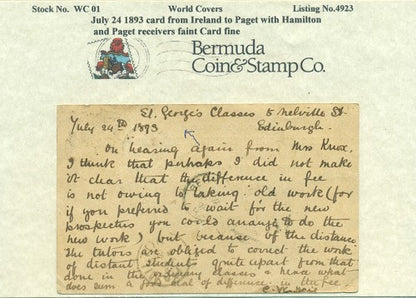 Stock No. WC 01 World Covers Listing No.4923
July 24 1893 card from Ireland to Paget with Hamilton
and Paget receivers faint Card fine
Bermuda
Coin&Stamp Co.
St. George's Classes 5 Melville St.
July 24th 1893 Edinburgh.
On hearing again from Mrs Knox,
I think that perhaps I did not make
it clear that the difference in fee
is not owing to taking old work (for
if you preferred to wait for the new
prospectus you could arrange to do the
new work) but because of the distance.
The tutors are obliged to correct the work
of distant students quite apart from that
done in the ordinary classes & hence what
does seem a good deal of difference in the fee.